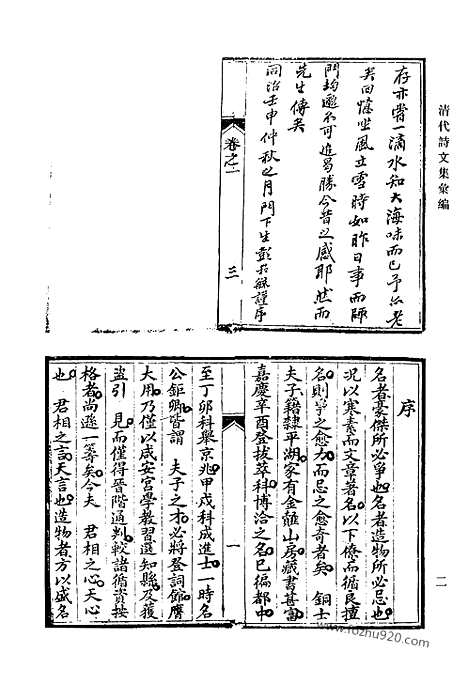 清代詩文集彙編
存亦嘗一滴水知大海味而已予亦老
矣回憶坐風立雪時如昨日事而師
門均邈不可追曷勝今昔之感耶然而
先生傳矣
同治壬申仲秋之月門下生彭
謹序
卷之一
三
二
序
名者豪傑所必爭也名者造物所必忌也
況以寒素而文章著名以下僚而循良擅
名則爭之愈力而忌之愈奇者矣 銅士
夫子籍隸平湖家有金
山房藏書甚富
嘉慶辛酉登拔萃科博洽之名已徧都中
一
至丁卯科舉京兆甲戌科成進士一時名
公鉅卿皆謂 夫子之才必將登詞館膺
大用乃僅以咸安宮學教習選知縣及獲
盜引 見而僅得晉階通判較諸循資按
格者尚遜一籌矣今夫 君相之心天心
也 君相之言天言也造物者方以盛名
www.fozhu920.com